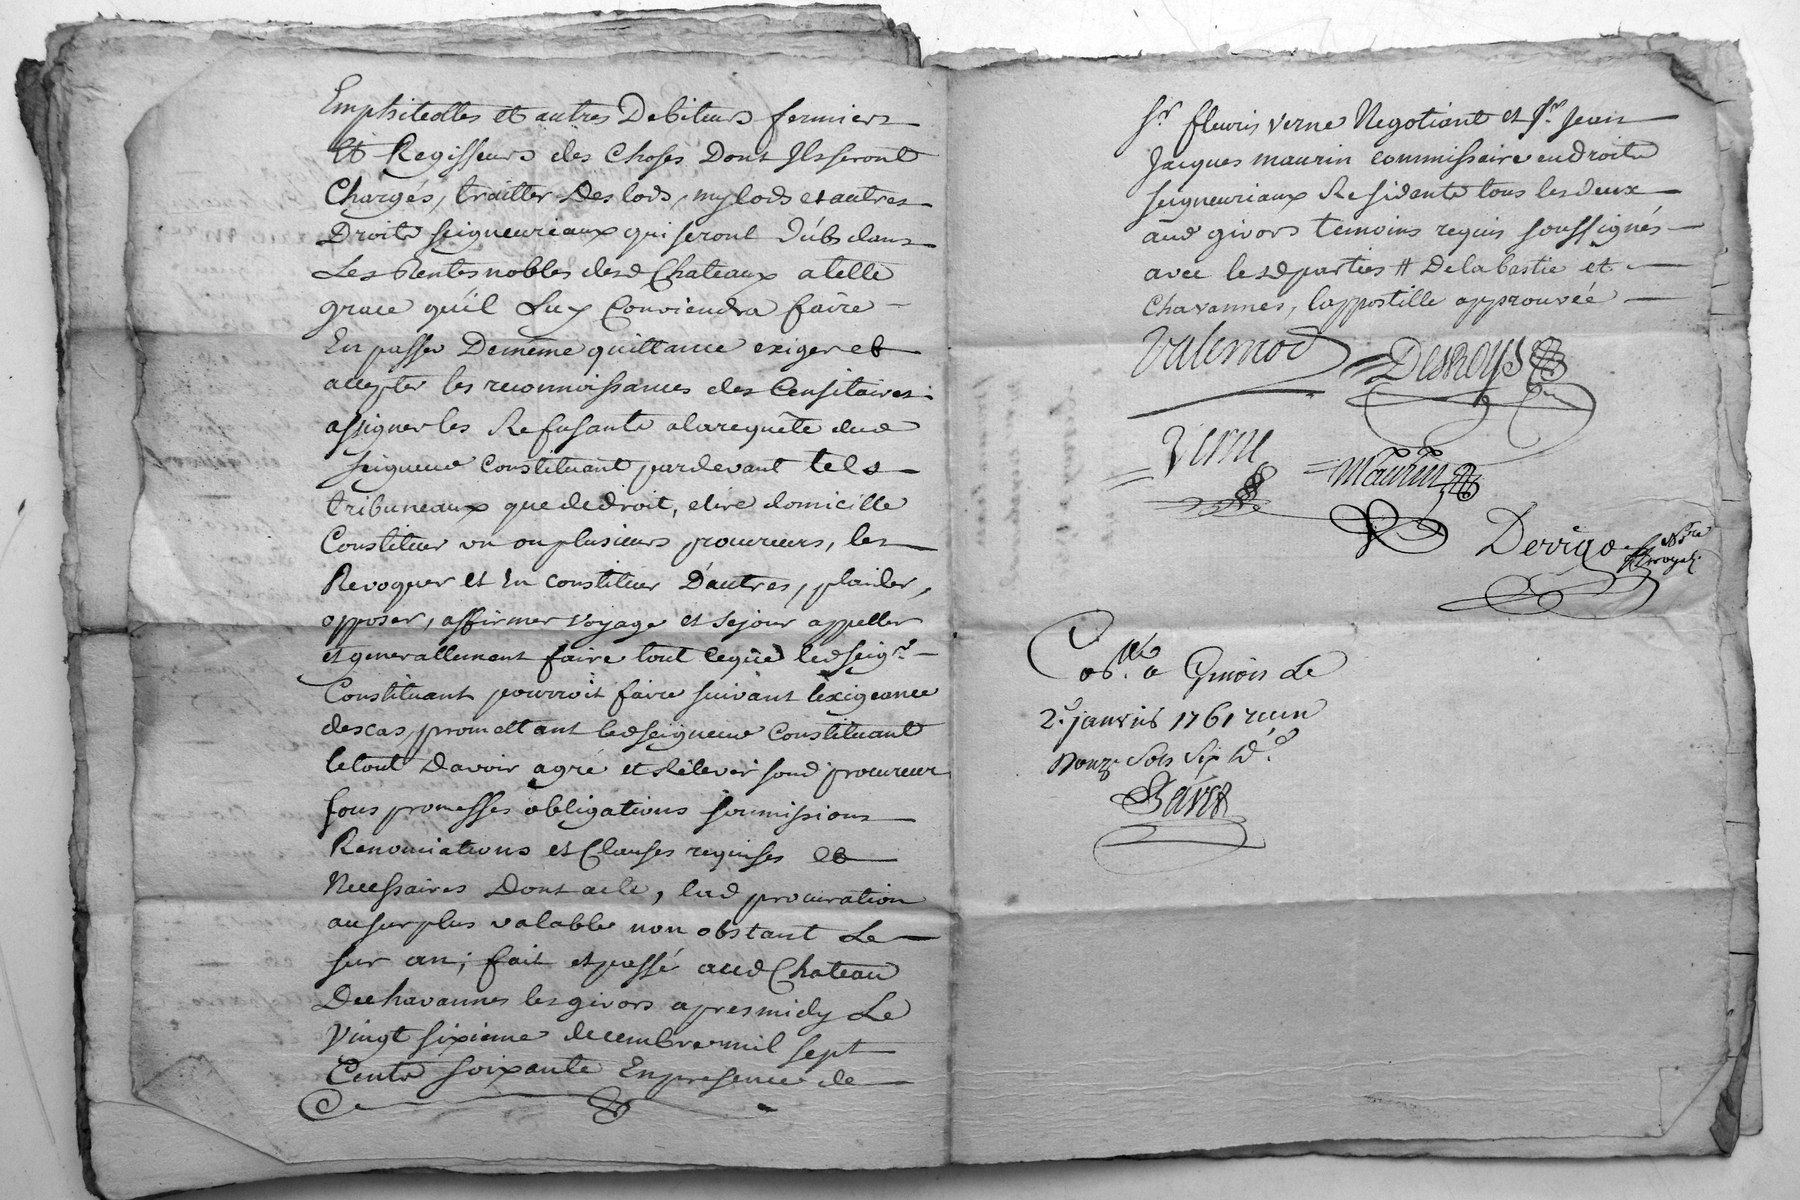 Emphiteottes et autres Debiteurs fermiers
Et Regisseurs des choses Dont Ils seront
Chargés, traitter Des lods, mylods et autres
Droits seigneuriaux qui seront dubs dans
Les Rentes nobles desd Chateaux a telle
grace qu'il Luy Conviendra faire
En passer De même quittance exiger et
accepter les reconnoissances des Censitaires
assigner les Refusants a la requête dud
seigneur Constituant pardevant tels
tribuneaux que de droit, elire domicille
Constituer un ou plusieurs procureurs, les
Revoquer et En constituer D'autres, plaider,
opposer, affirmer voyage et sejour appeller
et generallement faire tout ce que led seigr
Constituant pourroit faire suivant l'exigeance
des cas, promettant led seigneur Constituant
le tout D'avoir agré et Relever sond procureur
sous promesses obligations soumissions
Renonciations et Clauses requises et
Necessaires Dont acte, lad procuration
au surplus valable non obstant Le
sur an ; fait et passé aud Chateau
De chavannes les givors apres midy Le
Vingt sixieme decembre mil sept
Cents soixante En presence de
Sr fleuris verne Negotiant et Sr Jean
Jacques maurin commissaire en droits
seigneuriaux Residents tous les deux
aud givors temoins requis soussignés
avec lesd parties # De la bastie et
Chavannes, l'appostille approuvée
Valernod Deshoys
Verne maurin
Derrigo Nre royal
Collé a Givors Le
2e janvier 1761 recu
Douze sols six d